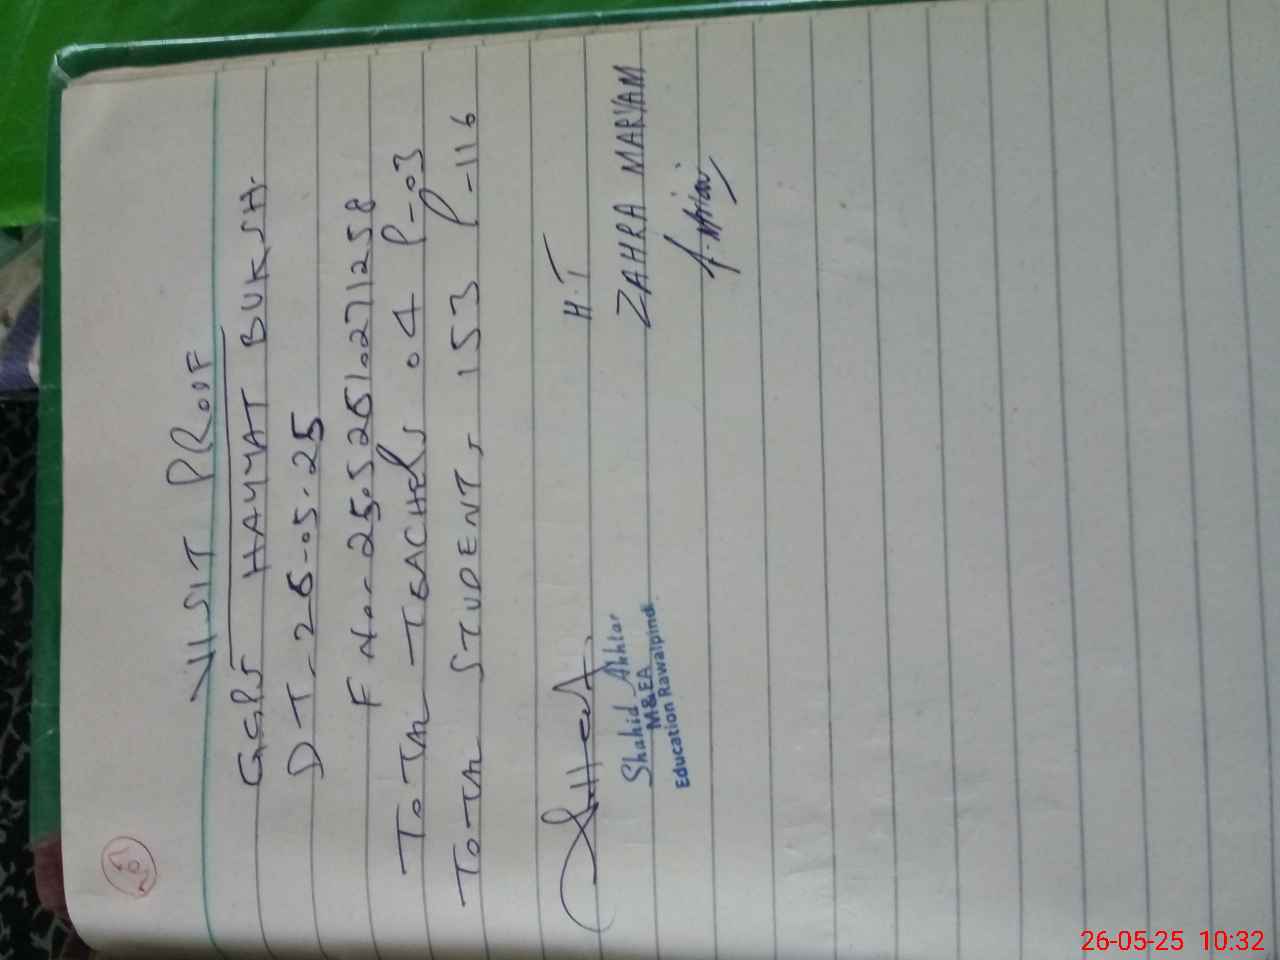 VISIT PROOF
GGPS HAYYAT BUKSH.
DT- 26-05-25
F No- 25052610271258
TOTAL TEACHERS 04 P-03
TOTAL STUDENTS 153 P-116
H.T
Shahid Akhtar
M&EA
Education Rawalpindi
ZAHRA MARYAM
26-05-25 10:32